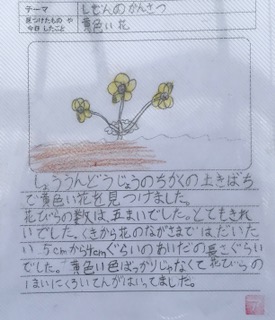 テーマ しぜんのかんさつ
見つけたもの や
今日 したこと 黄色い花
しょううんどうじょうのちかくの土きばち
で黄色い花を見つけました。
花びらの数は、五まいでした。とてもきれ
いでした。くきから花のながさまでは、だいた
い5cmから4cmぐらいのあいだの長さぐらい
でした。黄色い色ばっかりじゃなくて花びらの
1まいにくろいてんがはいってました。